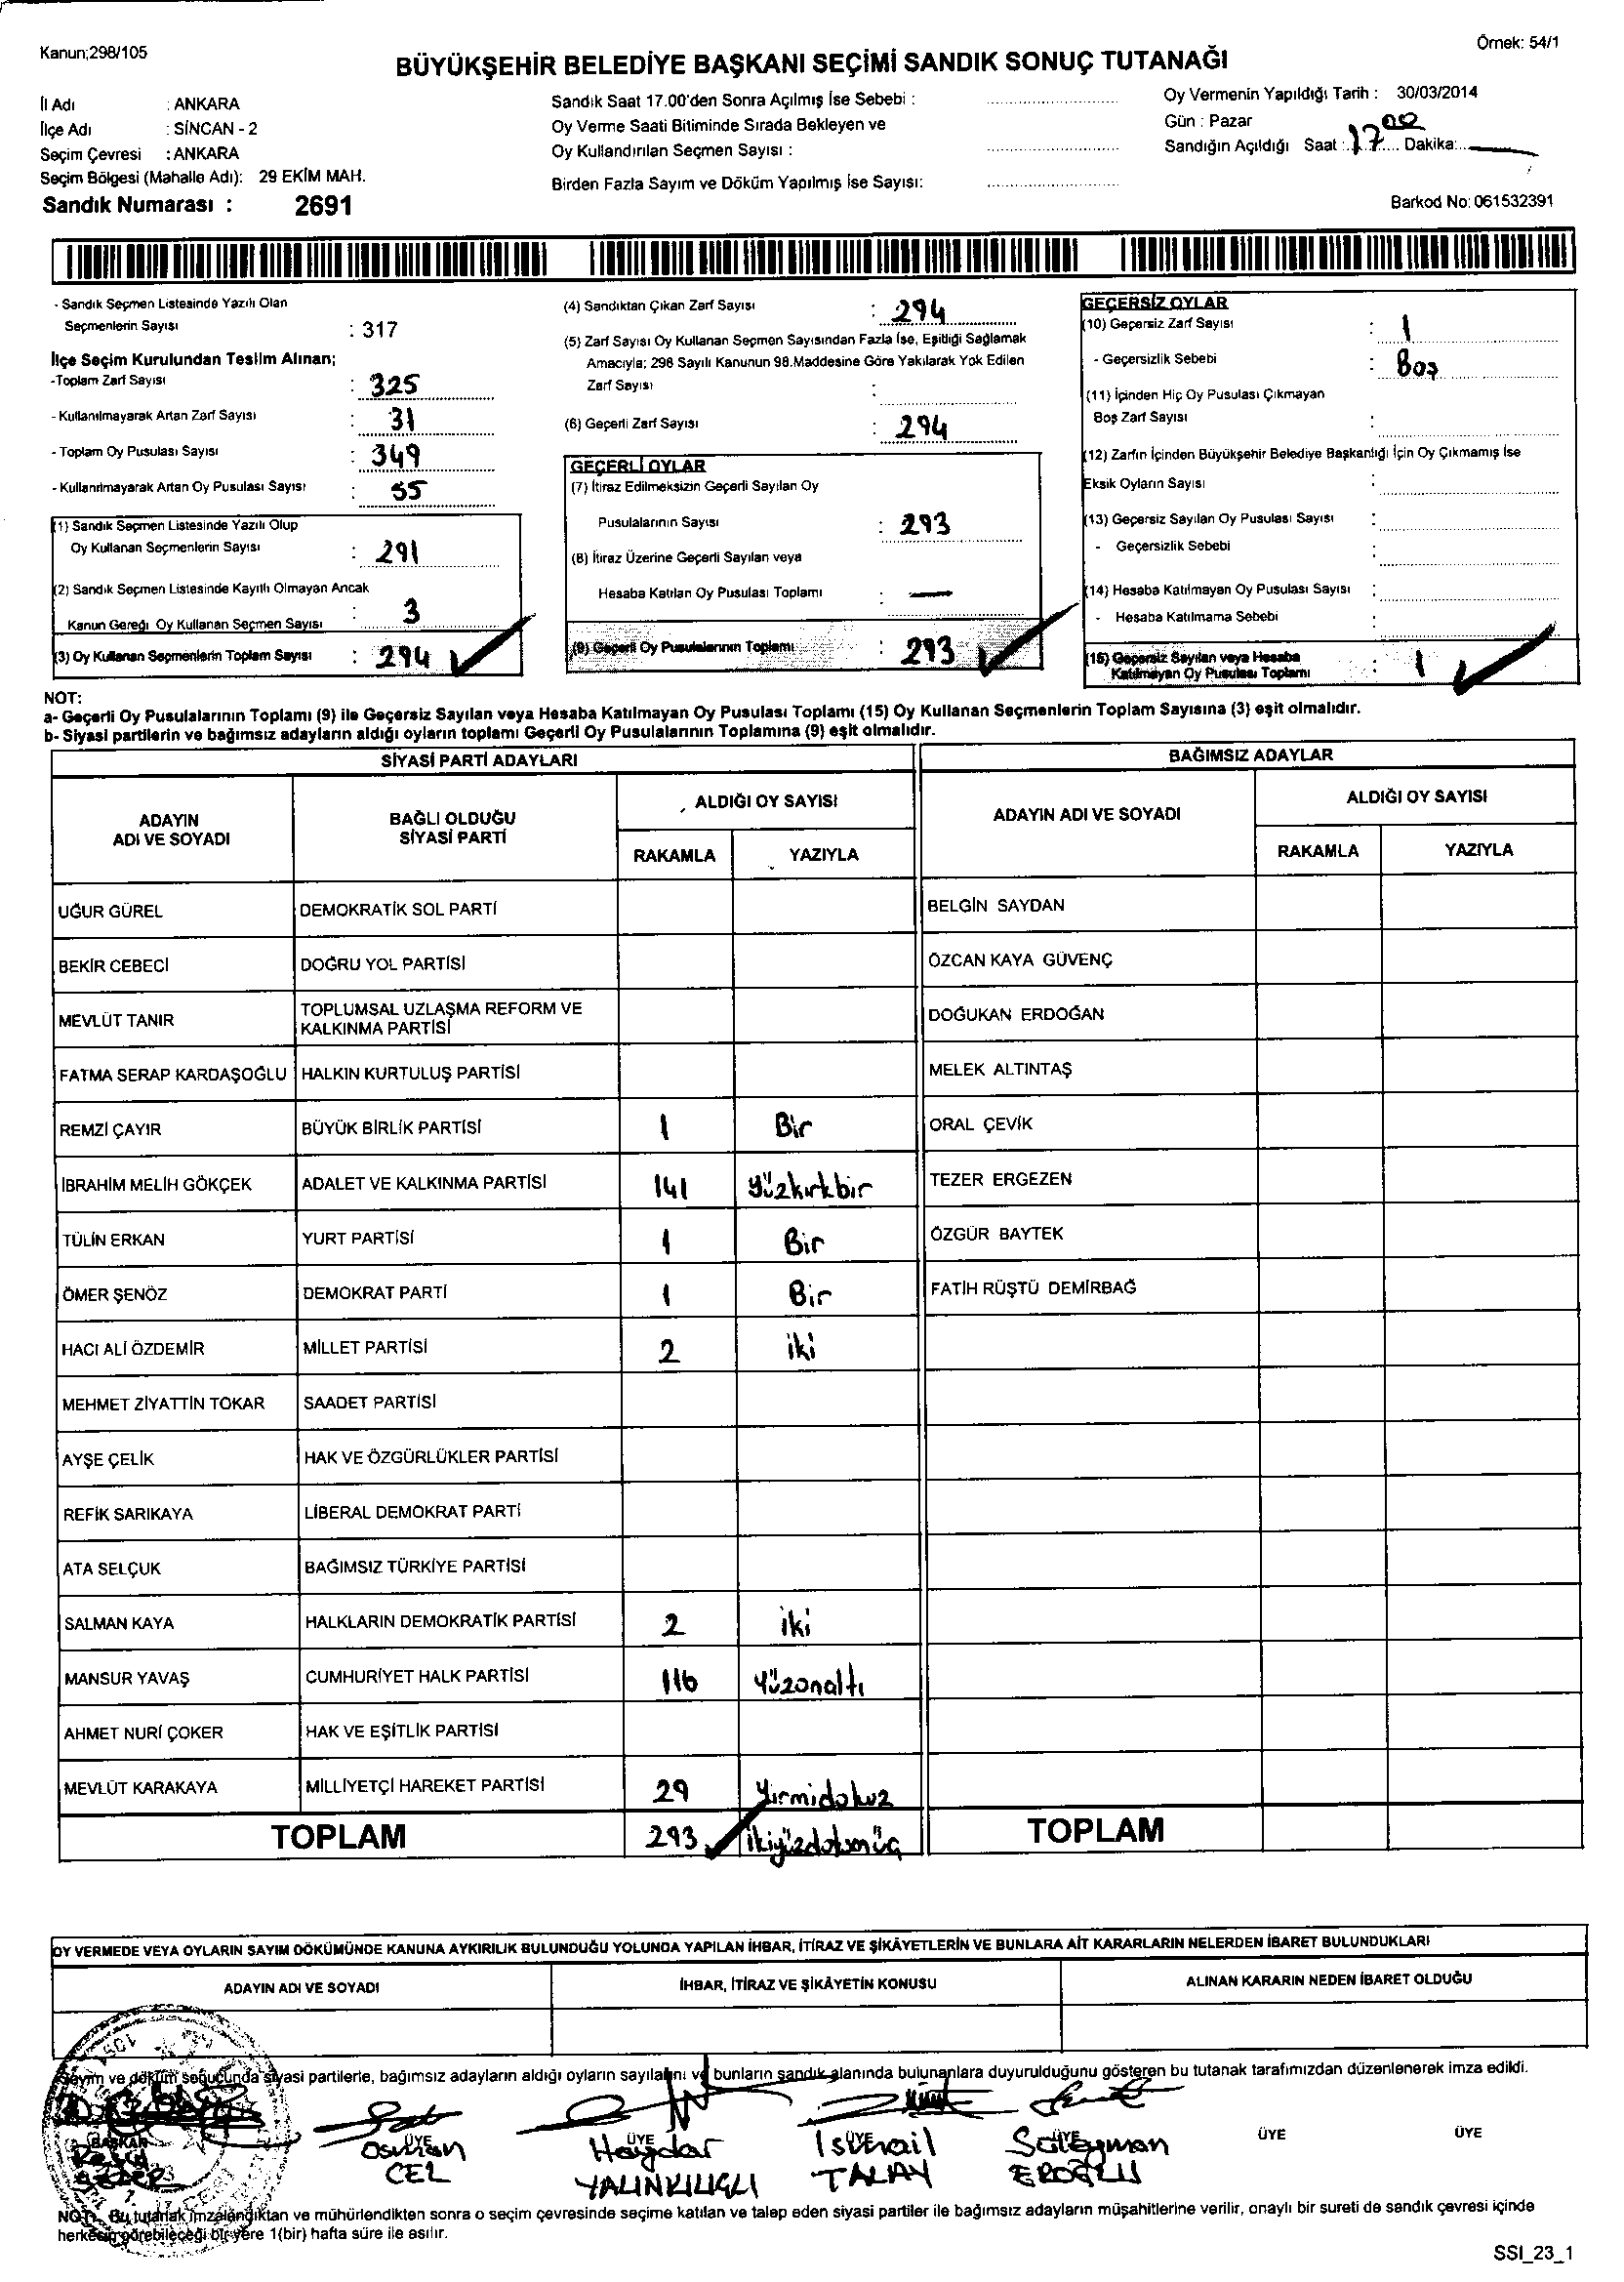 Kanun;298/105
Örnek: 54/1
BÜYÜKŞEHİR BELEDİYE BAŞKANI SEÇİMİ SANDIK SONUÇ TUTANAĞI
İl Adı : ANKARA
İlçe Adı : SİNCAN - 2
Seçim Çevresi : ANKARA
Seçim Bölgesi (Mahalle Adı): 29 EKİM MAH.
Sandık Numarası : 2691
Sandık Saat 17.00'den Sonra Açılmış İse Sebebi :
Oy Verme Saati Bitiminde Sırada Bekleyen ve
Oy Kullandırılan Seçmen Sayısı :
Birden Fazla Sayım ve Döküm Yapılmış İse Sayısı:
Oy Vermenin Yapıldığı Tarih : 30/03/2014
Gün : Pazar
Sandığın Açıldığı Saat : 17 00 Dakika:
Barkod No: 061532391
- Sandık Seçmen Listesinde Yazılı Olan
Seçmenlerin Sayısı : 317
İlçe Seçim Kurulundan Teslim Alınan;
-Toplam Zarf Sayısı : 325
- Kullanılmayarak Artan Zarf Sayısı : 31
- Toplam Oy Pusulası Sayısı : 349
- Kullanılmayarak Artan Oy Pusulası Sayısı : 55
(1) Sandık Seçmen Listesinde Yazılı Olup
Oy Kullanan Seçmenlerin Sayısı : 291
(2) Sandık Seçmen Listesinde Kayıtlı Olmayan Ancak
Kanun Gereği Oy Kullanan Seçmen Sayısı : 3
(3) Oy Kullanan Seçmenlerin Toplam Sayısı : 294
(4) Sandıktan Çıkan Zarf Sayısı : 294
(5) Zarf Sayısı Oy Kullanan Seçmen Sayısından Fazla İse, Eşitliği Sağlamak
Amacıyla; 298 Sayılı Kanunun 98.Maddesine Göre Yakılarak Yok Edilen
Zarf Sayısı :
(6) Geçerli Zarf Sayısı : 294
GEÇERLİ OYLAR
(7) İtiraz Edilmeksizin Geçerli Sayılan Oy
Pusulalarının Sayısı : 293
(8) İtiraz Üzerine Geçerli Sayılan veya
Hesaba Katılan Oy Pusulası Toplamı : —
(9) Geçerli Oy Pusulalarının Toplamı : 293
GEÇERSİZ OYLAR
(10) Geçersiz Zarf Sayısı : 1
- Geçersizlik Sebebi : Boş
(11) İçinden Hiç Oy Pusulası Çıkmayan
Boş Zarf Sayısı :
(12) Zarfın İçinden Büyükşehir Belediye Başkanlığı İçin Oy Çıkmamış İse
Eksik Oyların Sayısı :
(13) Geçersiz Sayılan Oy Pusulası Sayısı :
- Geçersizlik Sebebi :
(14) Hesaba Katılmayan Oy Pusulası Sayısı :
- Hesaba Katılmama Sebebi :
(15) Geçersiz Sayılan veya Hesaba
Katılmayan Oy Pusulası Toplamı : 1
NOT:
a- Geçerli Oy Pusulalarının Toplamı (9) ile Geçersiz Sayılan veya Hesaba Katılmayan Oy Pusulası Toplamı (15) Oy Kullanan Seçmenlerin Toplam Sayısına (3) eşit olmalıdır.
b- Siyasi partilerin ve bağımsız adayların aldığı oyların toplamı Geçerli Oy Pusulalarının Toplamına (9) eşit olmalıdır.
SİYASİ PARTİ ADAYLARI
ADAYIN ADI VE SOYADI BAĞLI OLDUĞU SİYASİ PARTİ ALDIĞI OY SAYISI
RAKAMLA YAZIYLA
UĞUR GÜREL DEMOKRATİK SOL PARTİ
BEKİR CEBECİ DOĞRU YOL PARTİSİ
MEVLÜT TANIR TOPLUMSAL UZLAŞMA REFORM VE KALKINMA PARTİSİ
FATMA SERAP KARDAŞOĞLU HALKIN KURTULUŞ PARTİSİ
REMZİ ÇAYIR BÜYÜK BİRLİK PARTİSİ 1 Bir
İBRAHİM MELİH GÖKÇEK ADALET VE KALKINMA PARTİSİ 141 Yüzkırkbir
TÜLİN ERKAN YURT PARTİSİ 1 Bir
ÖMER ŞENÖZ DEMOKRAT PARTİ 1 Bir
HACI ALİ ÖZDEMİR MİLLET PARTİSİ 2 iki
MEHMET ZİYATTİN TOKAR SAADET PARTİSİ
AYŞE ÇELİK HAK VE ÖZGÜRLÜKLER PARTİSİ
REFİK SARIKAYA LİBERAL DEMOKRAT PARTİ
ATA SELÇUK BAĞIMSIZ TÜRKİYE PARTİSİ
SALMAN KAYA HALKLARIN DEMOKRATİK PARTİSİ 2 iki
MANSUR YAVAŞ CUMHURİYET HALK PARTİSİ 116 Yüzonaltı
AHMET NURİ ÇOKER HAK VE EŞİTLİK PARTİSİ
MEVLÜT KARAKAYA MİLLİYETÇİ HAREKET PARTİSİ 29 Yirmidokuz
TOPLAM 293 ikiyüzdoksanüç
BAĞIMSIZ ADAYLAR
ADAYIN ADI VE SOYADI ALDIĞI OY SAYISI
RAKAMLA YAZIYLA
BELGİN SAYDAN
ÖZCAN KAYA GÜVENÇ
DOĞUKAN ERDOĞAN
MELEK ALTINTAŞ
ORAL ÇEVİK
TEZER ERGEZEN
ÖZGÜR BAYTEK
FATİH RÜŞTÜ DEMİRBAĞ
TOPLAM
OY VERMEDE VEYA OYLARIN SAYIM DÖKÜMÜNDE KANUNA AYKIRILIK BULUNDUĞU YOLUNDA YAPILAN İHBAR, İTİRAZ VE ŞİKÂYETLERİN VE BUNLARA AİT KARARLARIN NELERDEN İBARET BULUNDUKLARI
ADAYIN ADI VE SOYADI İHBAR, İTİRAZ VE ŞİKÂYETİN KONUSU ALINAN KARARIN NEDEN İBARET OLDUĞU
Sayım ve döküm sonucunda siyasi partilerle, bağımsız adayların aldığı oyların sayılarını ve bunların sandık alanında bulunanlara duyurulduğunu gösteren bu tutanak tarafımızdan düzenlenerek imza edildi.
BAŞKAN ÜYE ÜYE ÜYE ÜYE ÜYE ÜYE
Osman Haydar İsmail Süleyman
CEL YALINKILIÇLI TALAY EROĞLU
NOT: Bu tutanak imzalandıktan ve mühürlendikten sonra o seçim çevresinde seçime katılan ve talep eden siyasi partiler ile bağımsız adayların müşahitlerine verilir, onaylı bir sureti de sandık çevresi içinde
herkesin görebileceği bir yere 1(bir) hafta süre ile asılır.
SSI_23_1